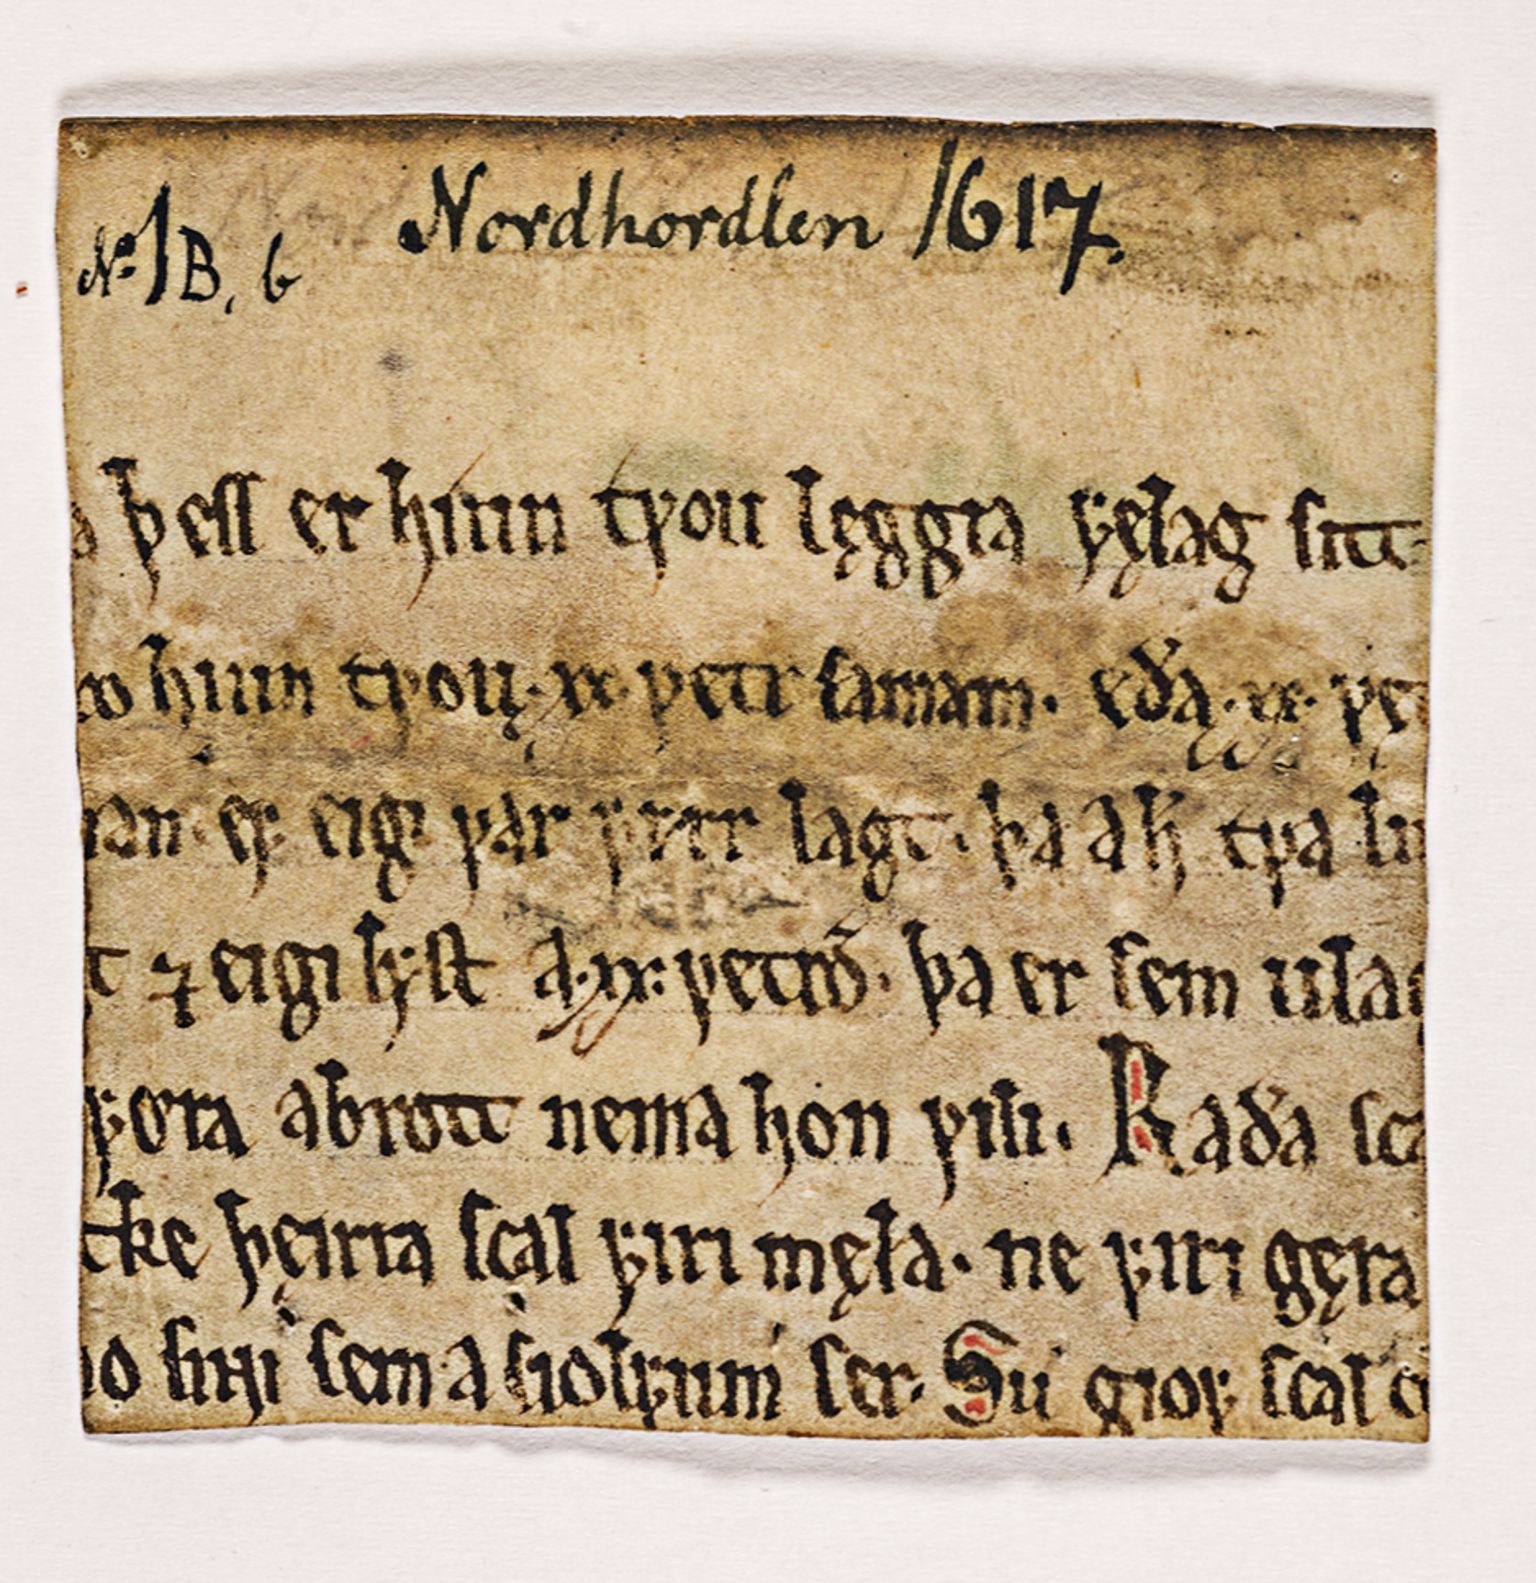 Nordhordlen 1617.
No 1 B, b
þess er hiun tꝩou lęggia ꝼęlag sitt
hiun tꝩou · xx · ꝩetr saman · eða · xx · ꝩę
er eigi ꝩar ꝼyrr lagt · þa a h̄ tꝩa lu
t ⁊ eigi lẏst a · xx · ꝩetrū · þa er sem ulag
ꝼǿra abrott nema hon ꝩili · Raða sca
cke þęirra scal ꝼiri męla · ne ꝼiri gęra
o sinu sem a siolꝼum ser · Sú gioꝼ scal ei